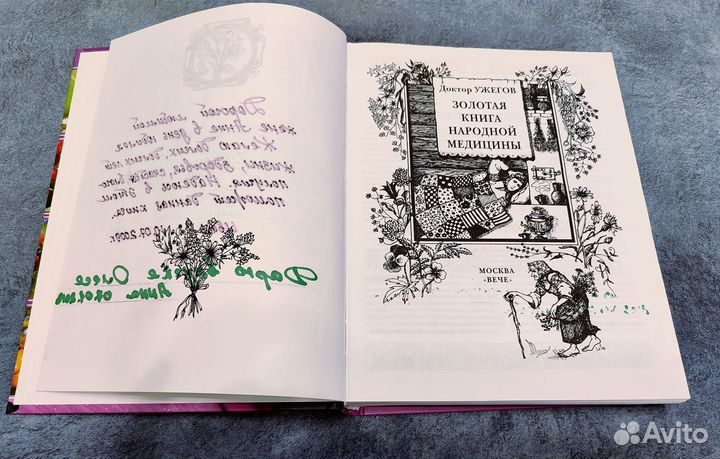 Дорогой любимой
жене Анне в день юбилея.
Желаю долгих, долгих лет
жизни, здоровья, счастья, благо
получия. Надеюсь в этом
поможет данная книга.
10.07.2009г.
Дарю Олесе
Анна
Доктор УЖЕГОВ
ЗОЛОТАЯ
КНИГА
НАРОДНОЙ
МЕДИЦИНЫ
МОСКВА
«ВЕЧЕ»
Avito